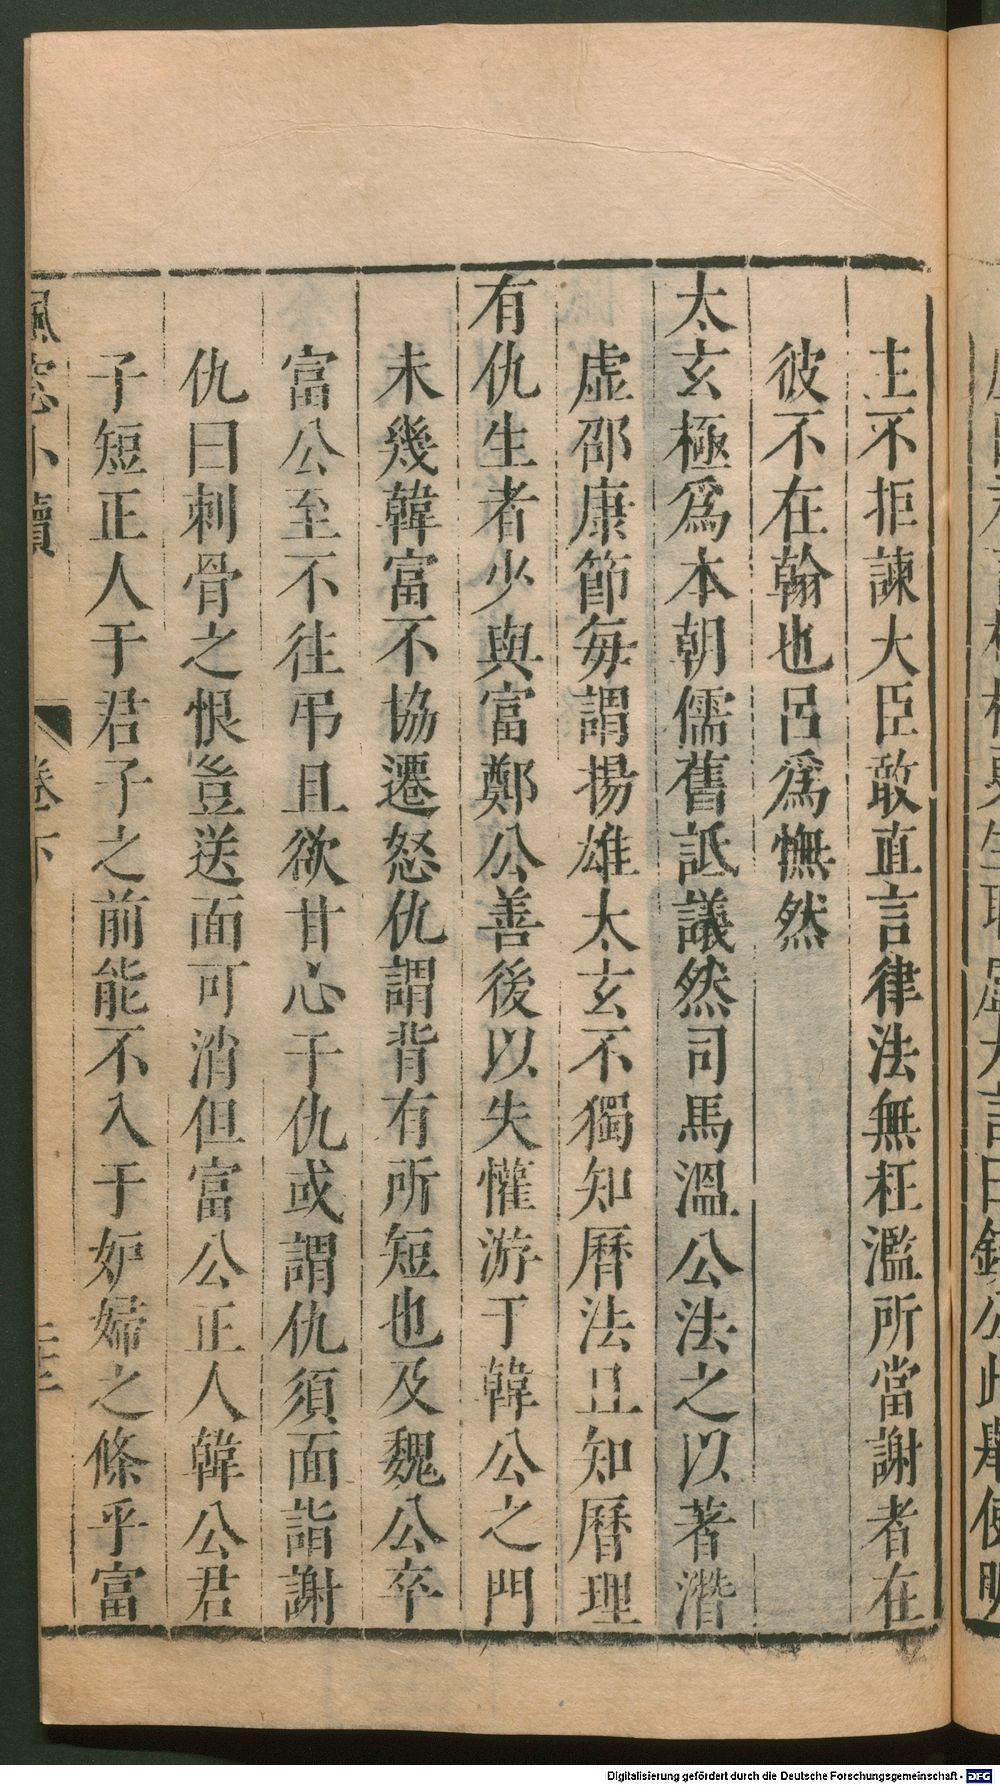 主不拒諫大臣敢直言律法無枉濫所當謝者在
彼不在翰也呂爲憮然
太玄極爲本朝儒舊詆議然司馬溫公法之以著潛
虛邵康節每謂揚雄太玄不獨知曆法且知曆理
有仇生者少與富鄭公善後以失懽游于韓公之門
未幾韓富不協遷怒仇謂背有所短也及魏公卒
富公至不往弔且欲甘心于仇或謂仇須面詣謝
仇曰刺骨之恨豈送面可消但富公正人韓公君
子短正人于君子之前能不入于妒婦之條乎富
楓窓小牘 卷下
Digitalisierung gefördert durch die Deutsche Forschungsgemeinschaft - DFG